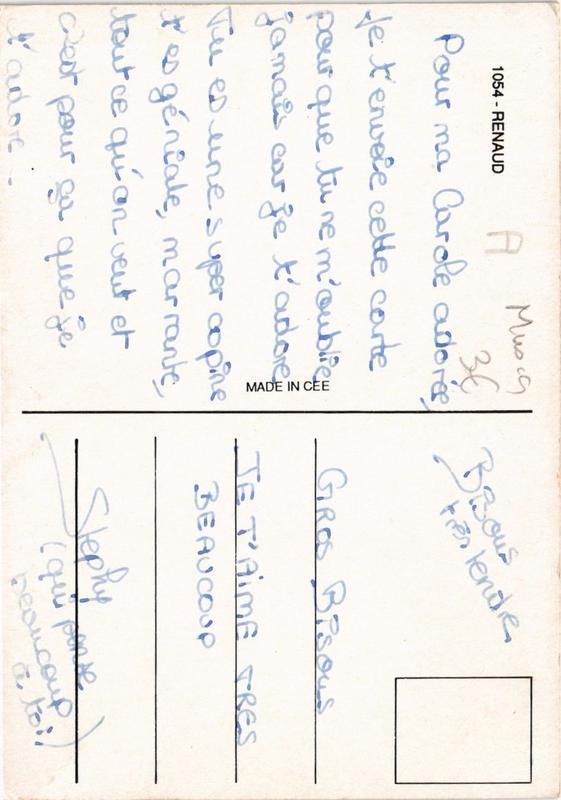 1054 - RENAUD
A
Musiq
3€
Pour ma Carole adorée,
Je t'envoie cette carte
pour que tu ne m'oublie
jamais car je t'adore
Tu es une super copine
t'es géniale, marrante,
tout ce qu'on veut et
c'est pour ça que je
t'adore..
MADE IN CEE
Bisous
très tendre
GROS BISOUS
JE T'AIME TRES
BEAUCOUP
Stephy
(qui pense
beaucoup
à toi)